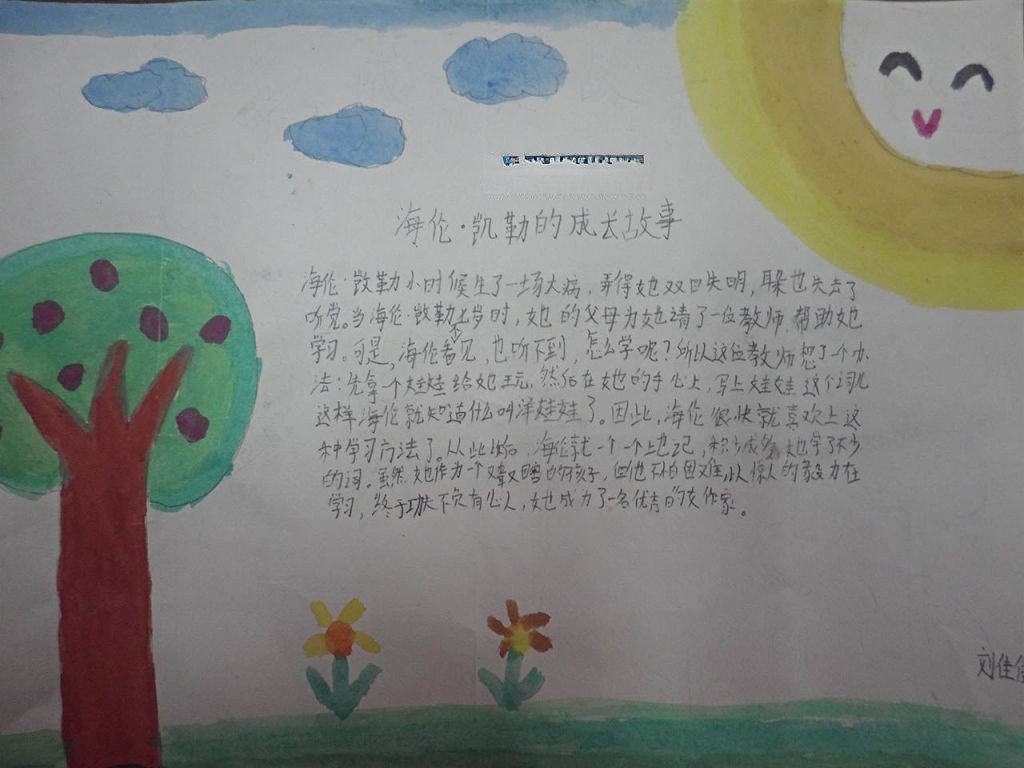 海伦·凯勒的成长故事
海伦·凯勒小时候生了一场大病,弄得她双目失明,耳朵也失去了
听觉。当海伦·凯勒七岁时,她的父母为她请了一位教师,帮助她
学习。可是,海伦看不见,也听不到,怎么学呢?所以这位教师想了一个办
法:先拿一个娃娃给她玩,然后在她的手心上,写上娃娃这个词儿
这样海伦就知道什么叫洋娃娃了。因此,海伦很快就喜欢上这
种学习方法了。从此以后,海伦就一个一个上边记,积少成多,她学了不少
的词。虽然她作为一个又聋又瞎的孩子,但她不怕困难,以惊人的毅力在
学习,终于功夫不负有心人,她成为了一名优秀的女作家。
刘佳